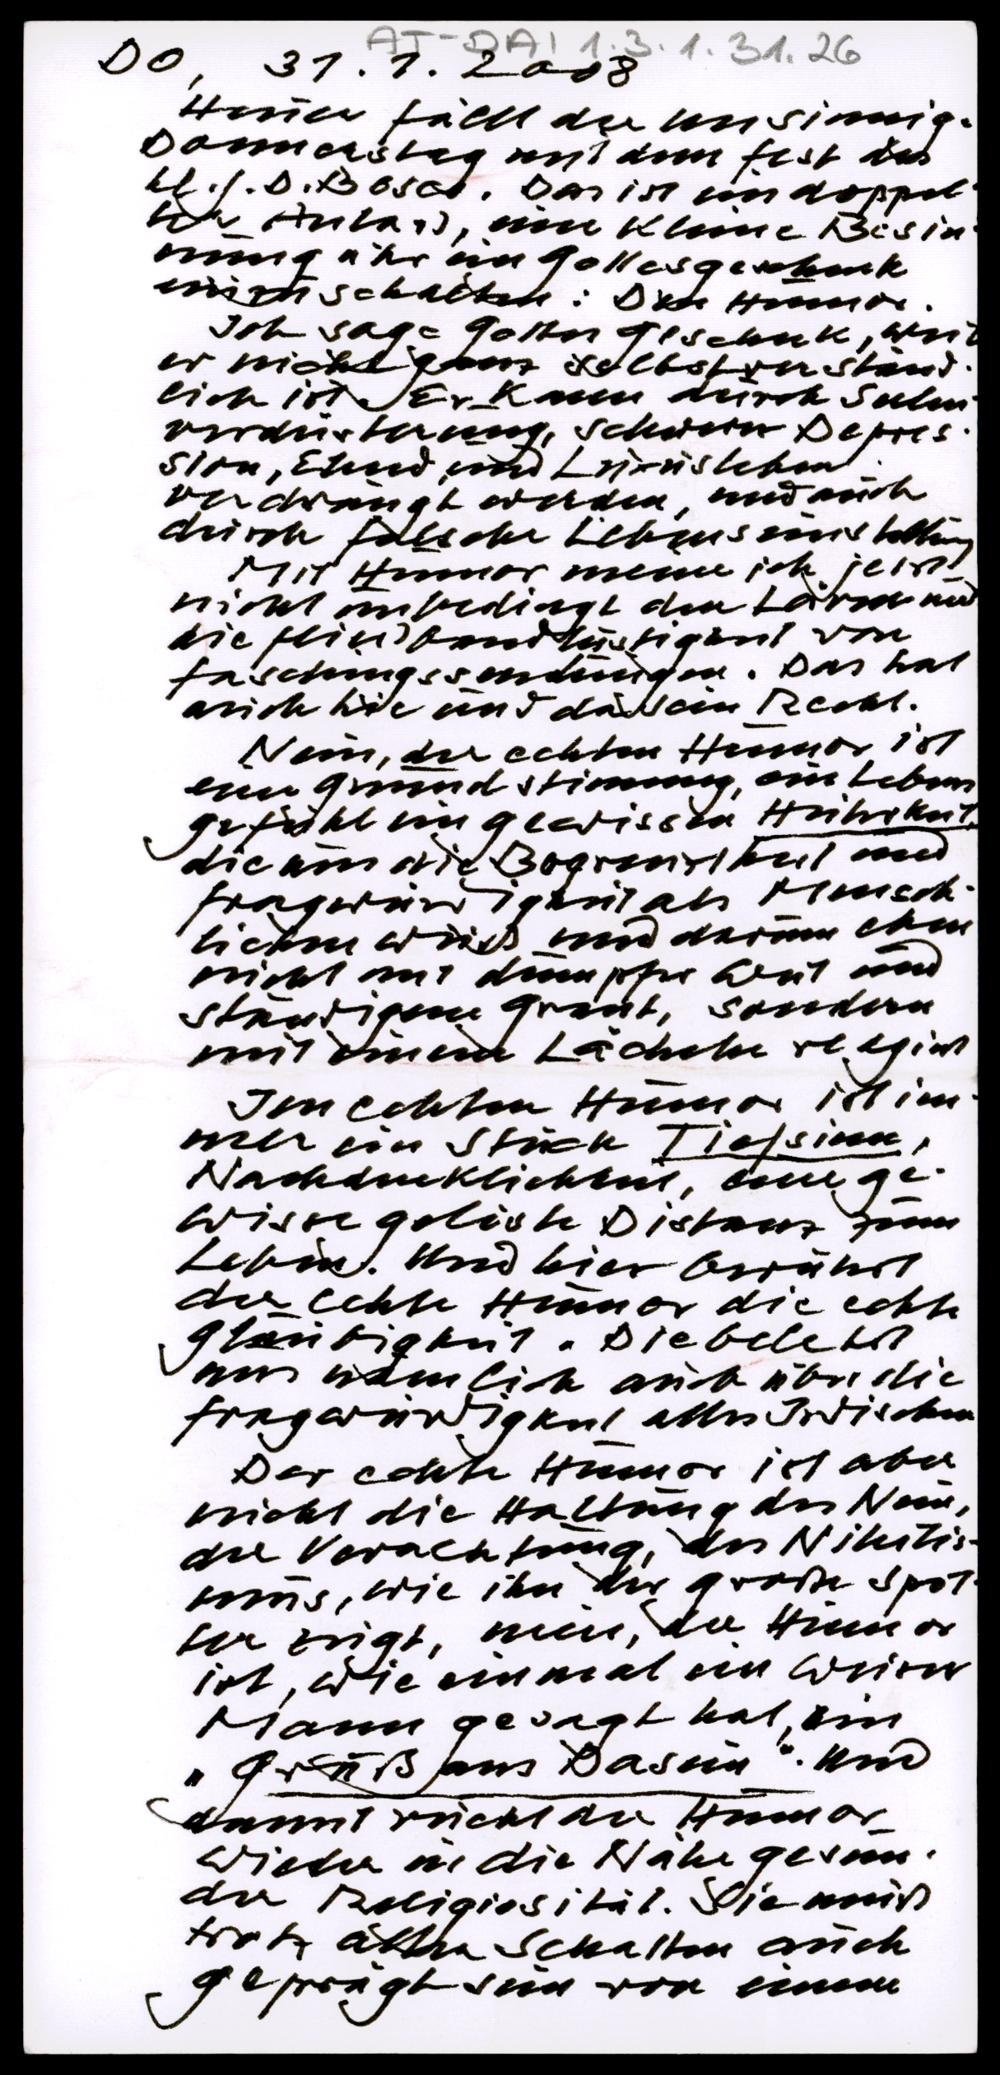 AT-DAI 1.3.1.31.26
DO, 31.1.2008
Heuer fällt der unsinnig.
Donnerstag mit dem Fest des
hl. J. D. Bosco. Das ist ein doppel-
ter Anlass, eine kleine Besin-
nung über ein Gottesgeschenk
einzuschalten: Den Humor.
Ich sage Gottesgeschenk, weil
er nicht ganz selbstverständ-
lich ist. Er kann durch Seelen-
verdüsterung, schwere Depres-
sion, Elend und
verdrängt werden, und auch
durch falsche Lebenseinstellung
Mit Humor meine ich jetzt
nicht unbedingt den Lärm und
die von
Faschingssendungen. Das hat
auch hie und da sein Recht.
Nein, der echten Humor ist
eine Grundstimmung, ein Lebens
gefühl ein gewissen Heiterkeit,
die um die Begrenztheit und
Fragwürdigkeit als Mensch-
lichen weiß und darum eben
nicht mit dumpfer Wut und
ständigem Grant, sondern
mit einem Lächeln reagiert
Im echten Humor ist im-
mer ein Stück Tiefsinn,
Nachdenklichkeit, eine ge-
wisse gelöste Distanz zum
Leben. Und hier berührt
der echte Humor die echte
Gläubigkeit. Die belehrt
uns nämlich auch über die
Fragwürdigkeit alles Irdischen
Der echte Humor ist aber
nicht die Haltung des Nein,
der Verachtung, des Nihilis-
mus, wie ihn der große Spöt-
ter zeigt, nein, der Humor
ist, wie einmal ein weiser
Mann gesagt hat, ein
„Gruß ans Dasein“. Und
damit rückt der Humor
wieder in die Nähe gesun-
der Religiosität. Sie muß
trotz aller Schatten auch
geprägt sein von einem